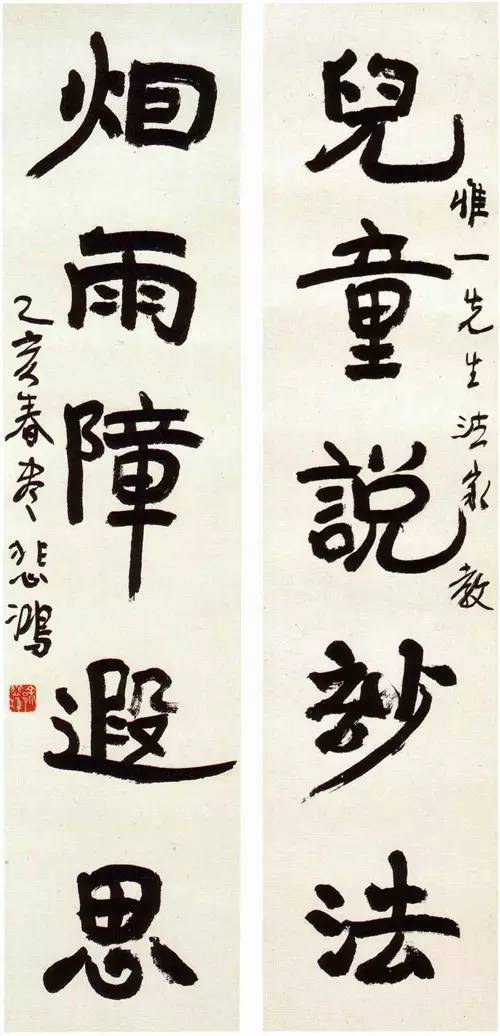 惟一先生法家教
兒童說玅法
烟雨障遐思
乙亥春尽悲鴻